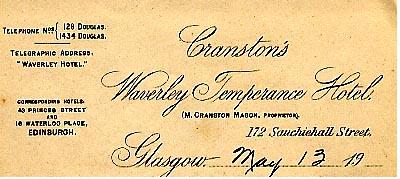 TELEPHONE Nos { 128 DOUGLAS.
1434 DOUGLAS.
TELEGRAPHIC ADDRESS.
"WAVERLEY HOTEL."
CORRESPONDING HOTELS:
43 PRINCES STREET
AND
16 WATERLOO PLACE,
EDINBURGH.
Cranston's
Waverley Temperance Hotel.
(M. CRANSTON MASON, PROPRIETOR).
172 Sauchiehall Street,
Glasgow. May 13 19